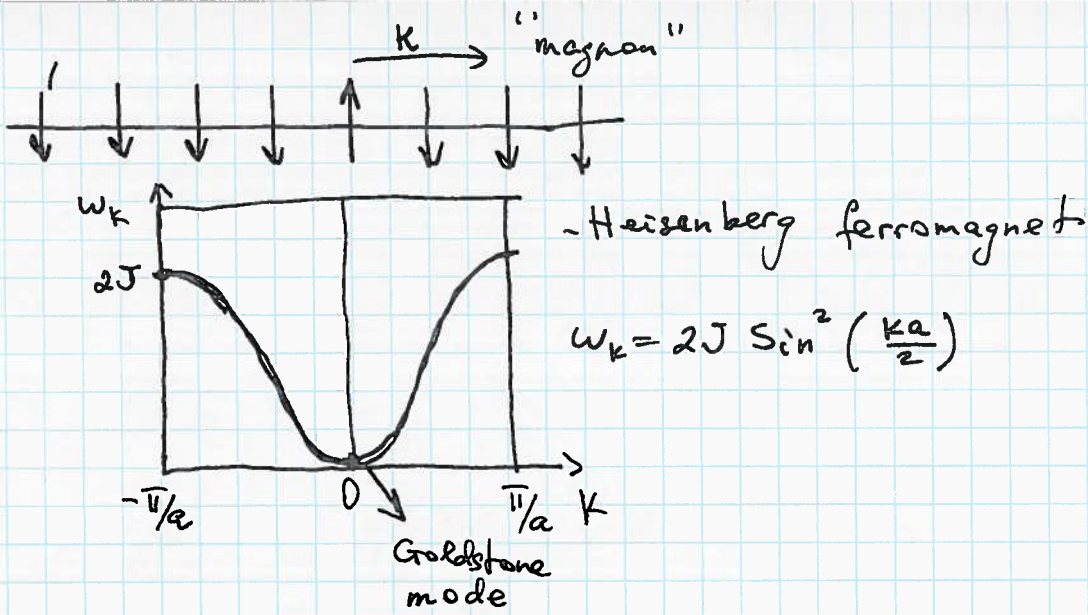 K "magnon"
ωₖ
2J
- Heisenberg ferromagnet
ωₖ = 2J Sin² (ka/2)
-π/a 0 π/a K
Goldstone
mode